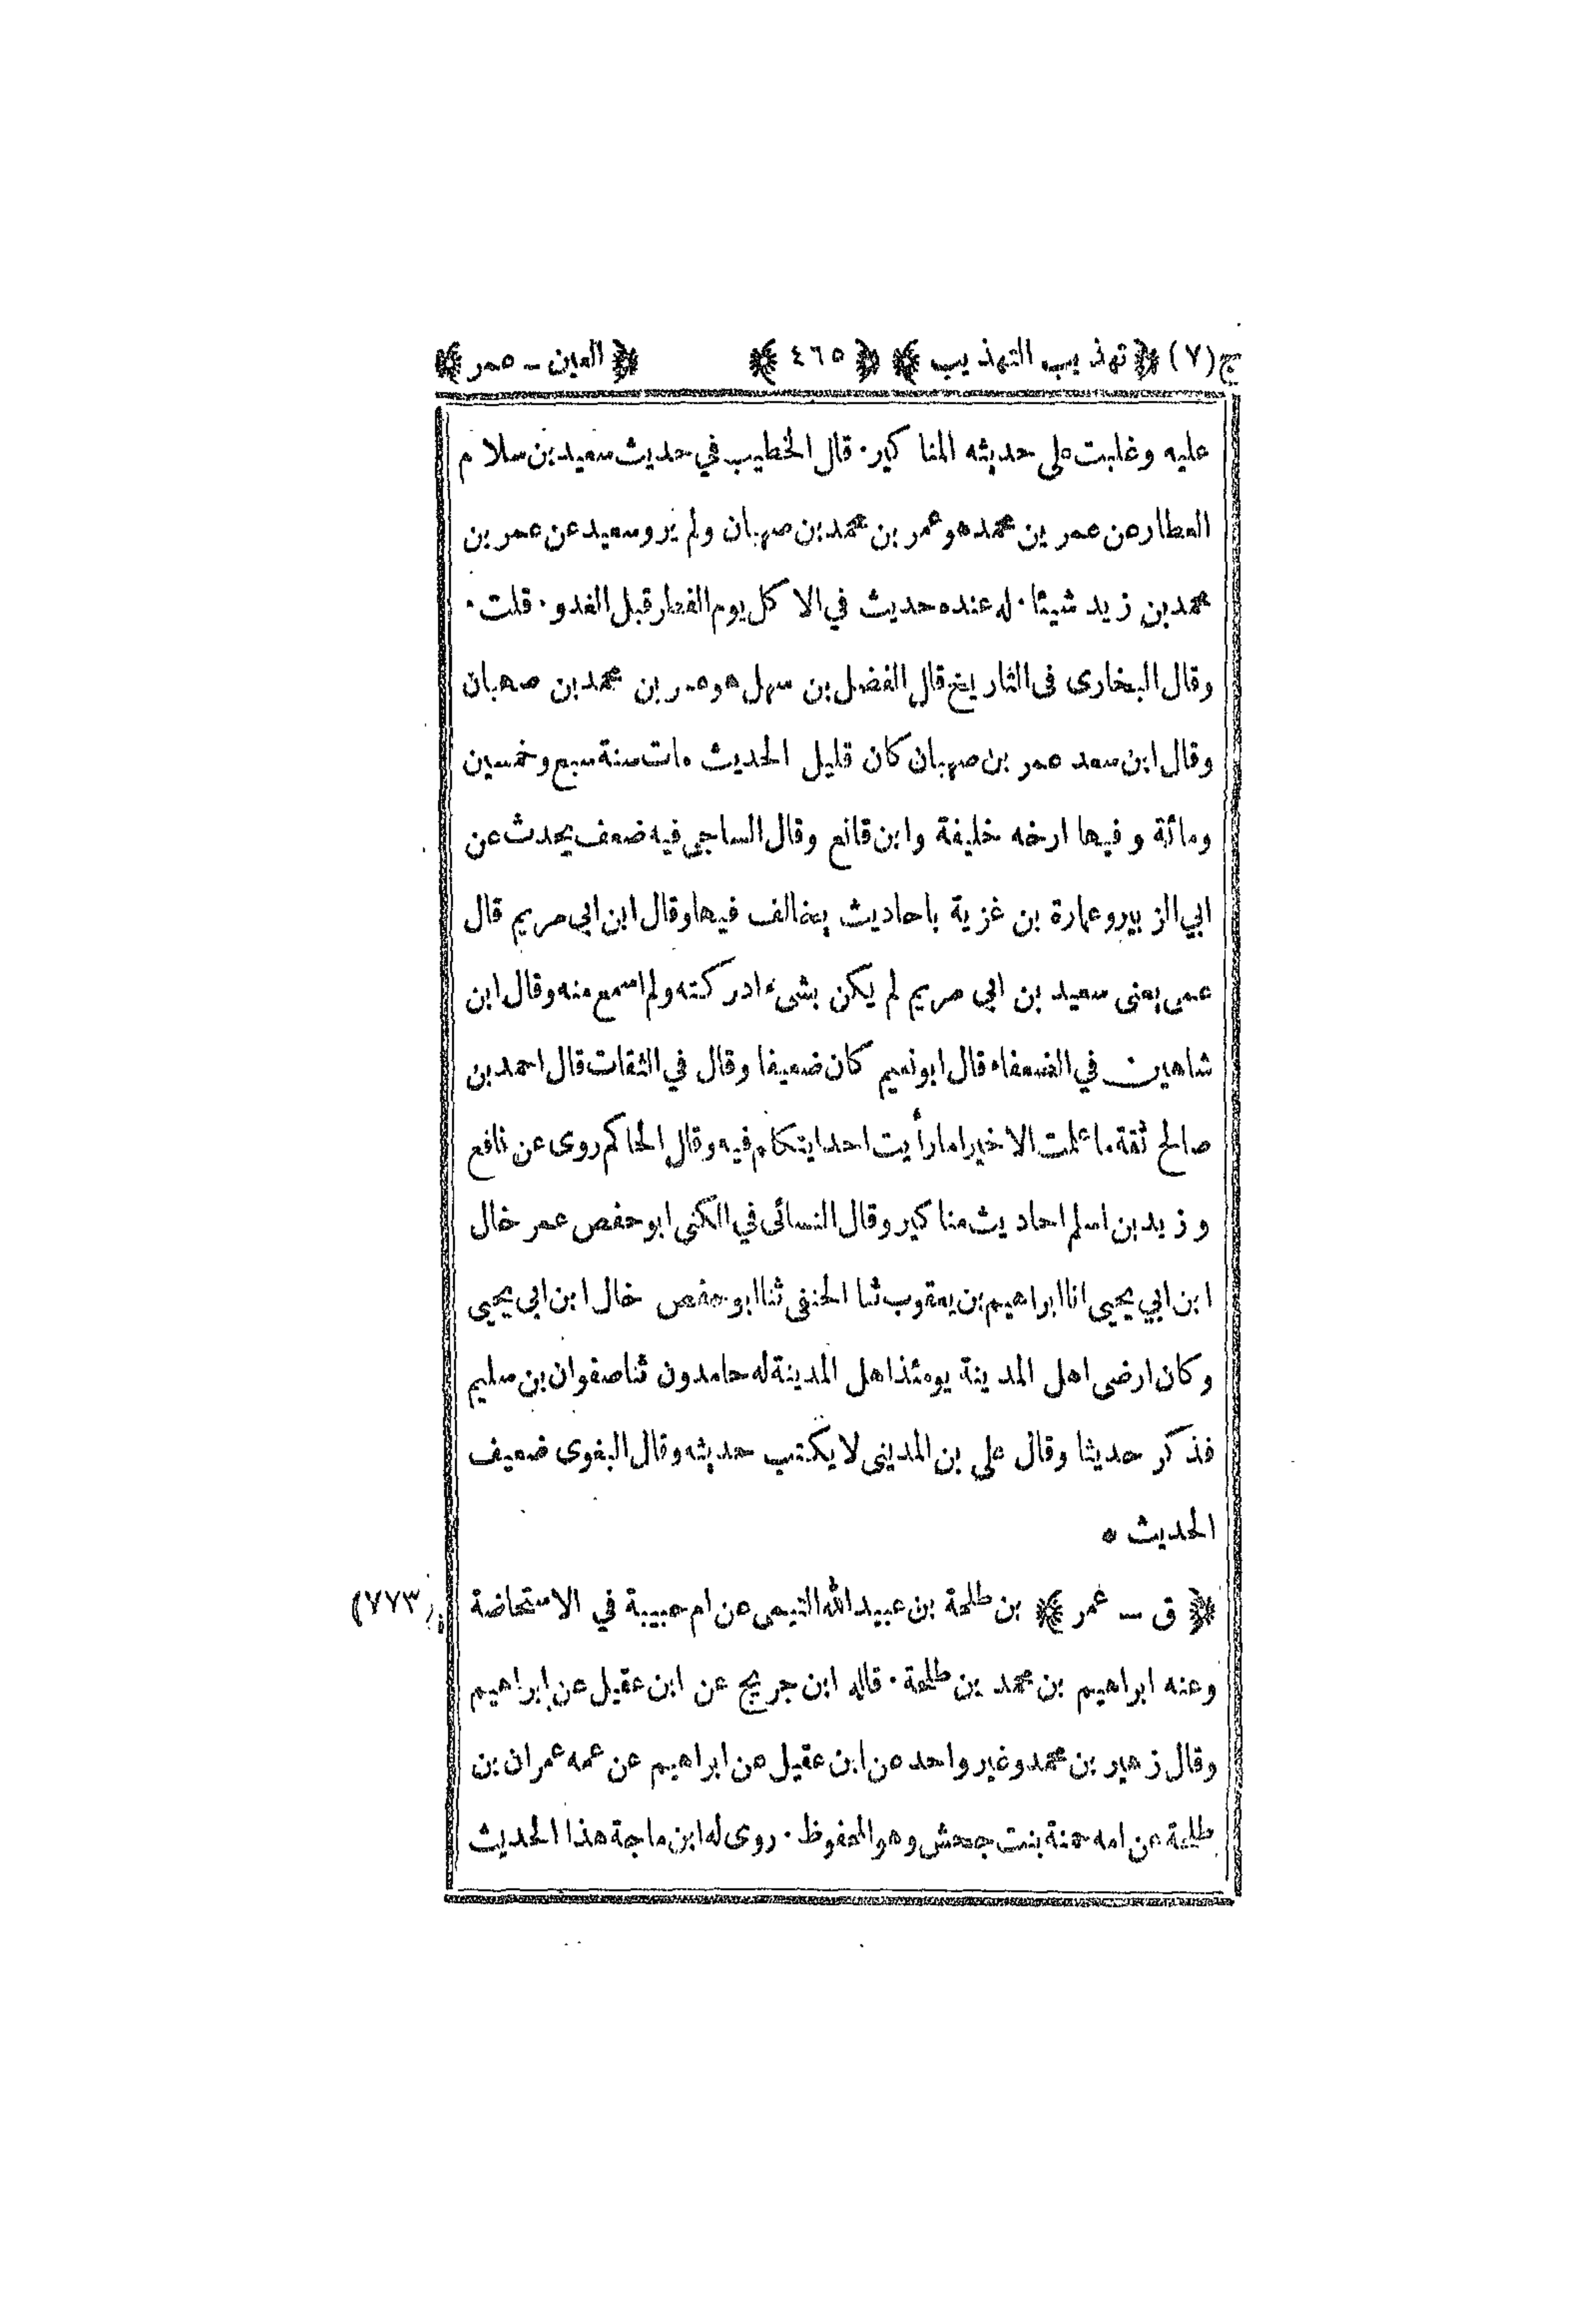 ج(٧) ﴿تهذيب التهذيب﴾ ﴿٤٦٥﴾ ﴿العين - عمر﴾
عليه وغلبت على حديثه المناكير· قال الخطيب في حديث سعيد بن سلام
العطار عن عمر بن محمد هو عمر بن محمد بن صهبان ولم يرو سعيد عن عمر بن
محمد بن زيد شيئا· له عنده حديث في الاكل يوم الفطر قبل الغدو· قلت·
وقال البخارى فى التاريخ قال الفضل بن سهل هو عمر بن محمد بن صهبان
وقال ابن سعد عمر بن صهبان كان قليل الحديث مات سنة سبع وخمسين
ومائة وفيها ارخه خليفة وابن قانع وقال الساجي فيه ضعف يحدث عن
ابي الزبير وعمارة بن غزية باحاديث يخالف فيها وقال ابن ابى مريم قال
عمى يعنى سعيد بن ابي مريم لم يكن بشىء ادركته ولم اسمع منه وقال ابن
شاهين في الضعفاء قال ابو نعيم كان ضعيفا وقال في الثقات قال احمد بن
صالح ثقة ما علمت الا خيرا ما رأيت احدا يتكلم فيه وقال الحاكم روى عن نافع
وزيد بن اسلم احاديث مناكير وقال النسائى في الكنى ابو حفص عمر خال
ابن ابي يحيى انا ابراهيم بن يعقوب ثنا الحنفى ثنا ابو حفص خال ابن ابي يحيى
وكان ارضى اهل المدينة يومئذ اهل المدينة له حامدون ثنا صفوان بن سليم
فذكر حديثا وقال على بن المدينى لا يكتب حديثه وقال البغوى ضعيف
الحديث ه
﴿ق - عمر﴾ بن طلحة بن عبيد الله التيمى عن ام حبيبة في الاستحاضة (٧٧٣)
وعنه ابراهيم بن محمد بن طلحة· قاله ابن جريج عن ابن عقيل عن ابراهيم
وقال زهير بن محمد وغير واحد عن ابن عقيل عن ابراهيم عن عمه عمران بن
طلحة عن امه حمنة بنت جحش وهو المحفوظ· روى له ابن ماجة هذا الحديث